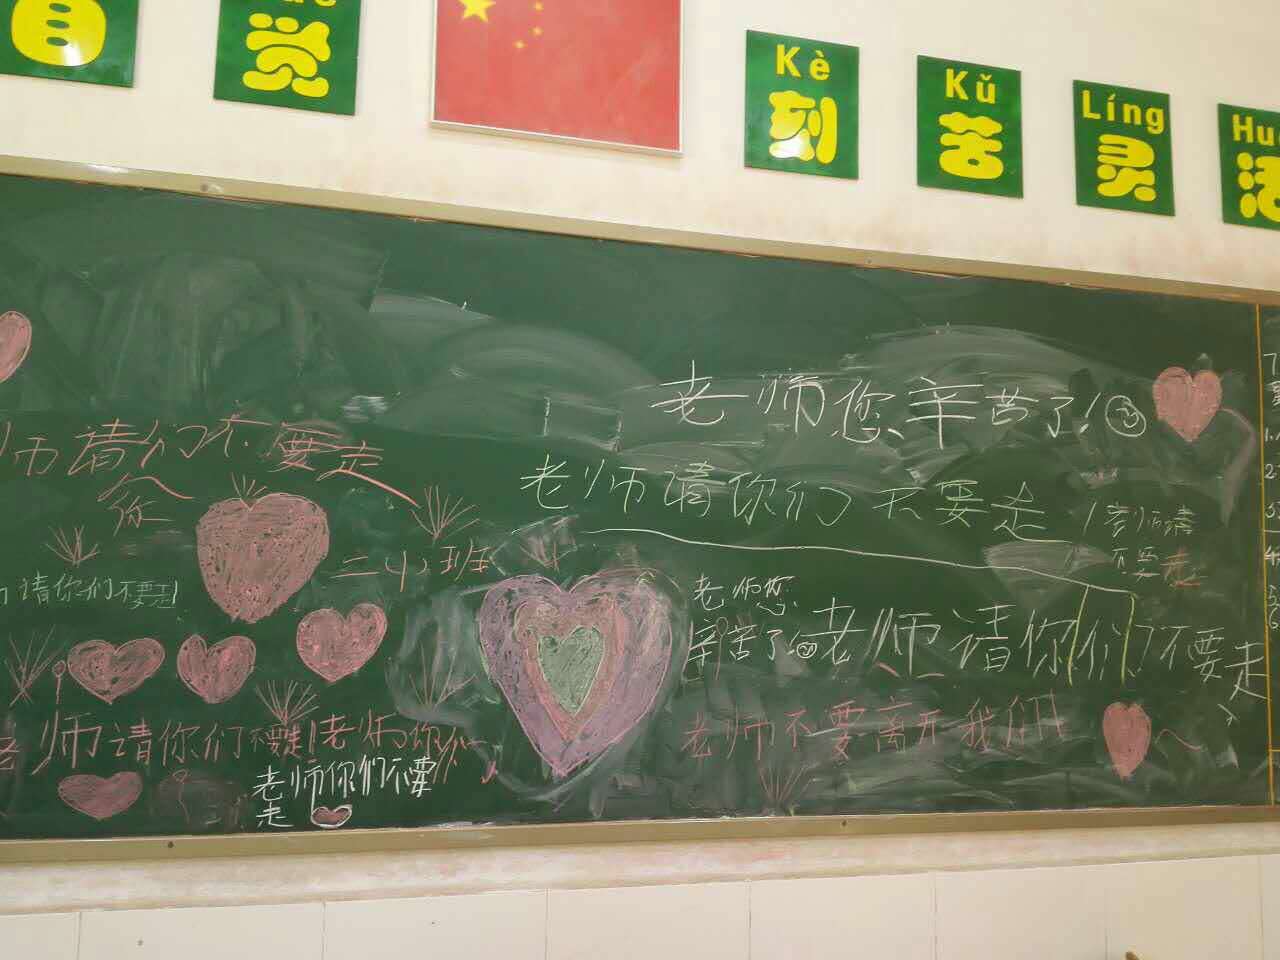 自 觉 Kè Kǔ Líng Hu
刻 苦 灵 活
老师您辛苦了!
师请们不要走
你
老师请你们不要走!
老师请
不要走
二(4)班
请你们不要走!
老师您
辛苦了
老师请你们不要走
老师不要离开我们
老师请你们不要走!老师你们
老师你们不要
走
1.
2.
3
4
5
6